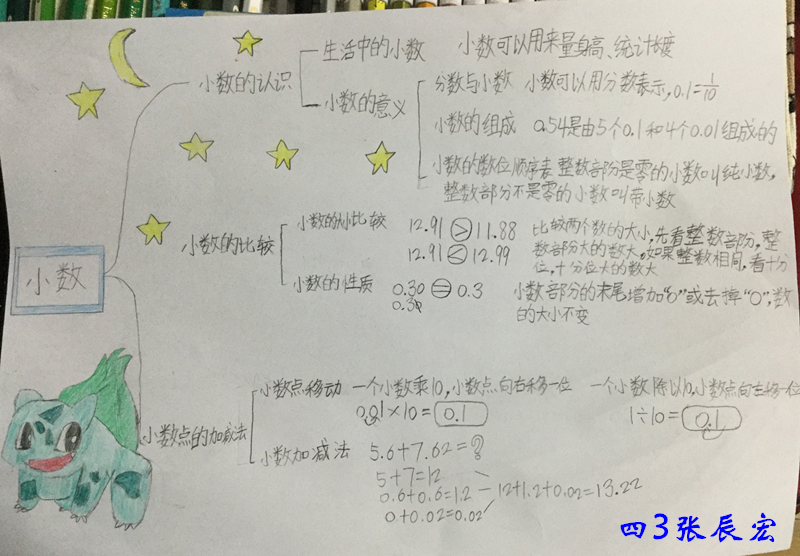 小数
小数的认识
生活中的小数 小数可以用来量身高、统计长度
小数的意义
分数与小数 小数可以用分数表示,0.1=1/10
小数的组成 0.54是由5个0.1和4个0.01组成的
小数的数位顺序表 整数部分是零的小数叫纯小数,
整数部分不是零的小数叫带小数
小数的比较
小数的小比较 12.91>11.88
12.91<12.99
比较两个数的大小,先看整数部分,整
数部分大的数大,如果整数相同,看十分
位,十分位大的数大
小数的性质 0.30=0.3
小数部分的末尾增加“0”或去掉“0”,数
的大小不变
小数点的加减法
小数点移动 一个小数乘10,小数点向右移一位 一个小数除以10,小数点向左移一位
0.01×10=0.1 1÷10=0.1
小数加减法 5.6+7.62=?
5+7=12
0.6+0.6=1.2 12+1.2+0.02=13.22
0+0.02=0.02
四3张辰宏